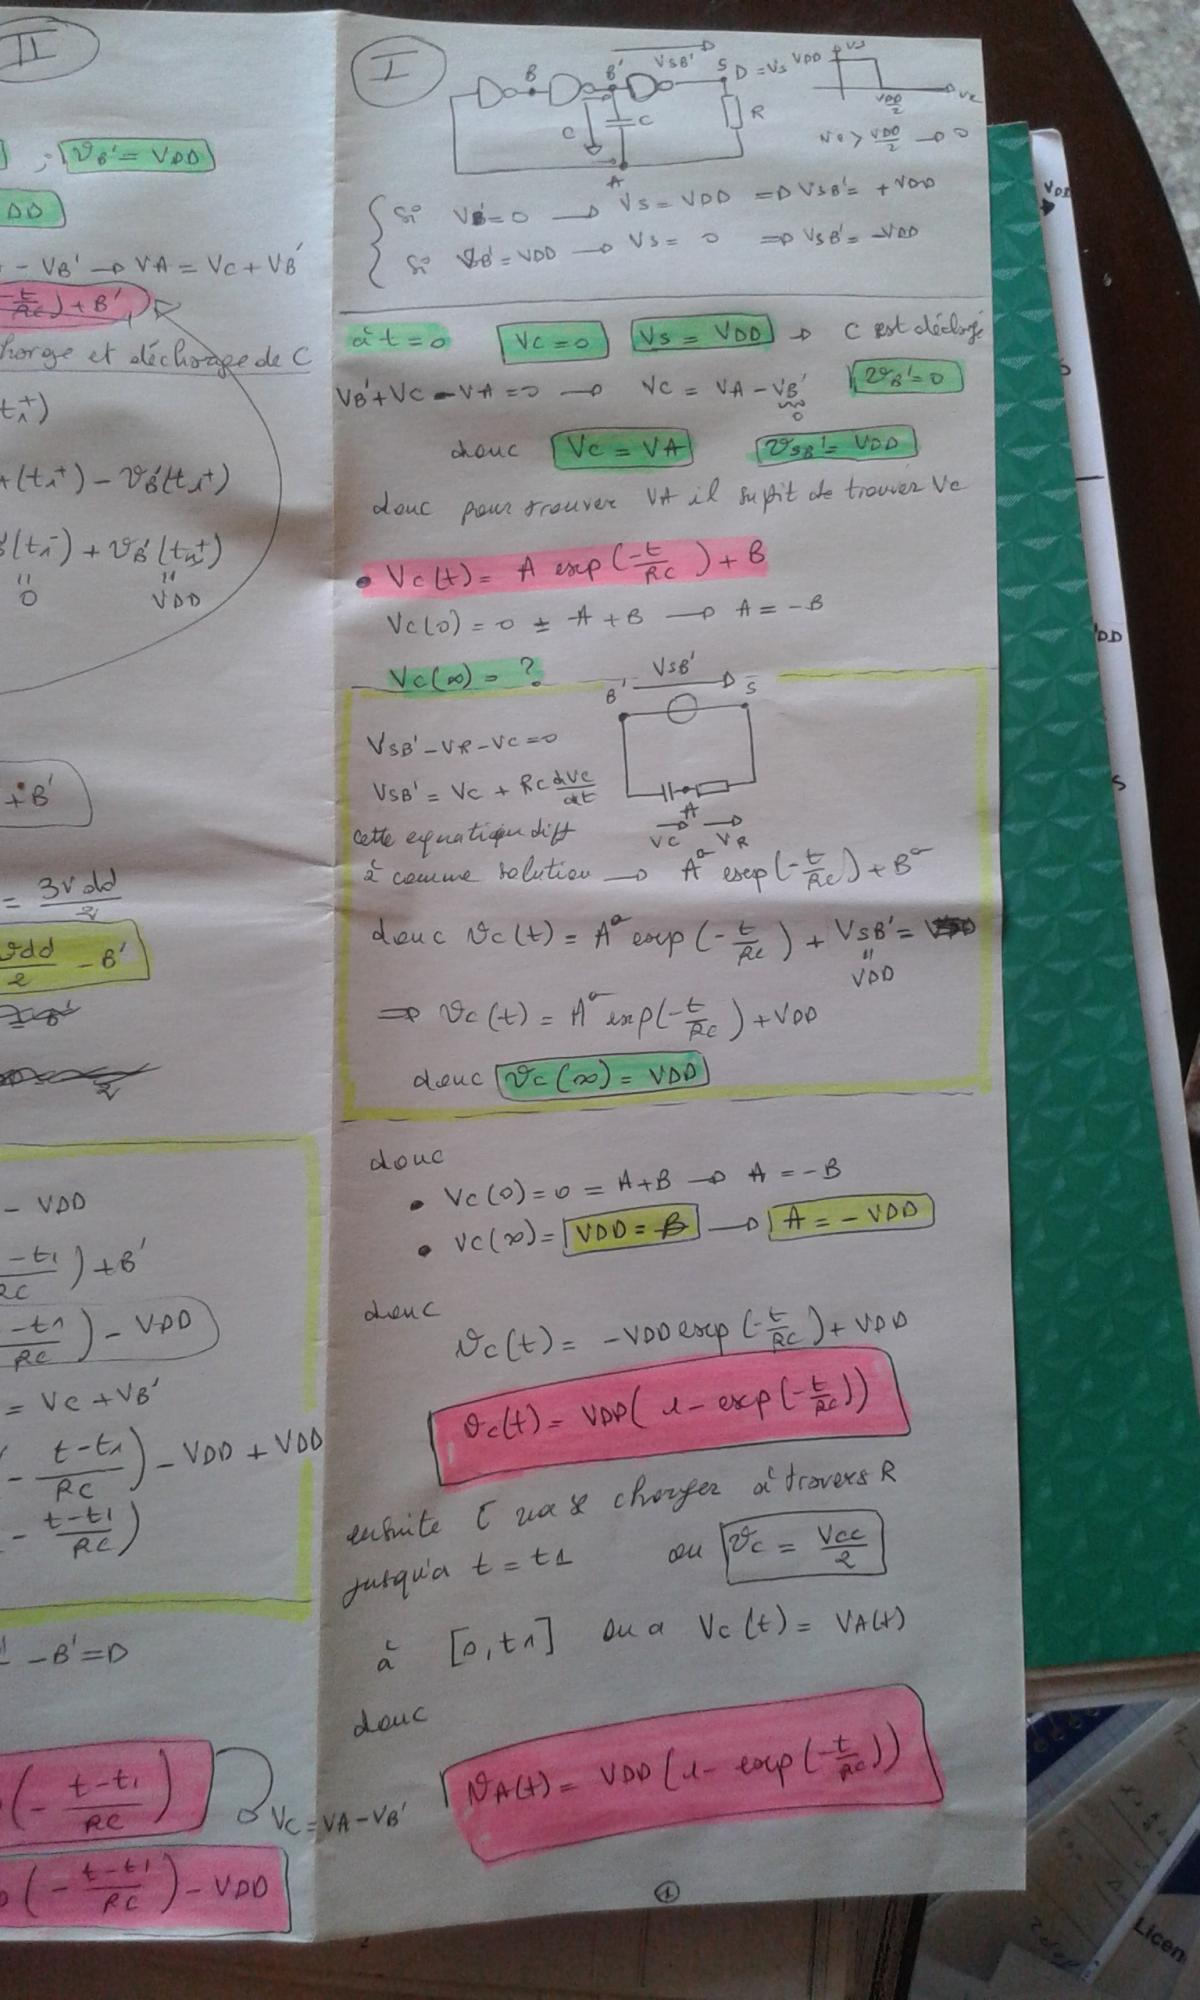 II
; VB' = VDD
DD
- VB' → VA = VC + VB'
-t/RC) + B'
charge et décharge de C
t1+)
A(t1+) - VB'(t1+)
(t1-) + VB'(t1+)
0 VDD
+ B'
= 3Vdd/2
Vdd/2 - B'
2
- VDD
-t1/RC) + B'
-t1/RC) - VDD
= VC + VB'
- t-t1/RC) - VDD + VDD
- t-t1/RC)
- B' = D
(- t-t1/RC)
VC = VA - VB'
(- t-t1/RC) - VDD
I
B B' VSB' S D = VS VDD VS
C C R VDD/2 VE
A
Ve > VDD/2 → 0
Si VB' = 0 → VS = VDD ⇒ VSB' = +VDD
Si VB' = VDD → VS = 0 ⇒ VSB' = -VDD
à t = 0 VC = 0 VS = VDD → C est déchargé
VB' + VC - VA = 0 → VC = VA - VB' VB' = 0
0
donc VC = VA VSB' = VDD
donc pour trouver VA il sufit de trouver VC
• VC(t) = A exp(-t/RC) + B
VC(0) = 0 = A + B → A = -B
VC(∞) = ?
B' VSB' S
VSB' - VR - VC = 0
VSB' = VC + RC dVC/dt
A
VC VR
cette equation diff
à comme solution → A exp(-t/RC) + B
donc VC(t) = A exp(-t/RC) + VSB' =
VDD
⇒ VC(t) = A exp(-t/RC) + VDD
donc VC(∞) = VDD
donc
• VC(0) = 0 = A + B → A = -B
• VC(∞) = VDD = B → A = -VDD
donc
VC(t) = -VDD exp(-t/RC) + VDD
VC(t) = VDD(1 - exp(-t/RC))
ensuite C va se charger à travers R
jusqu'a t = t1 ou VC = VCC/2
à [0, t1] on a VC(t) = VA(t)
donc
VA(t) = VDD(1 - exp(-t/RC))
1
VDD
DD
S
Licen